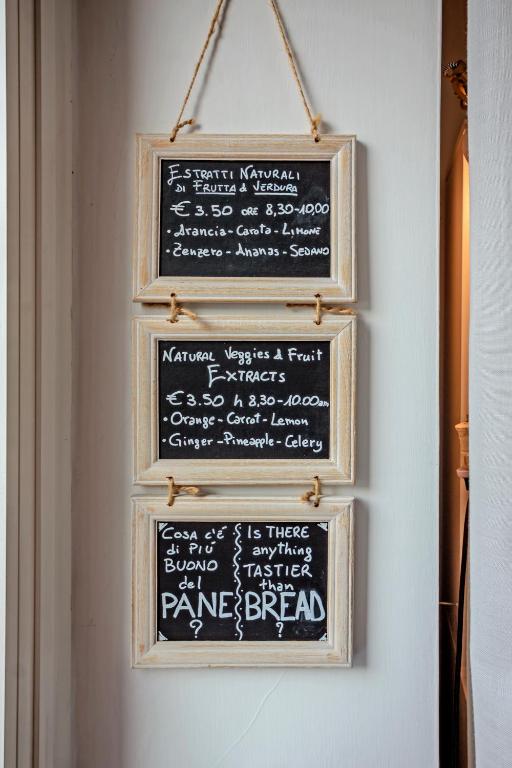 ESTRATTI NATURALI
DI FRUTTA & VERDURA
€ 3.50 ORE 8,30-10,00
• Arancia - Carota - LIMONE
• Zenzero - Ananas - SEDANO
NATURAL Veggies & Fruit
EXTRACTS
€ 3.50 h 8,30-10.00am
• Orange - Carrot - Lemon
• Ginger - Pineapple - Celery
COSA c'é
di PIÚ
BUONO
del
PANE
?
IS THERE
anything
TASTIER
than
BREAD
?